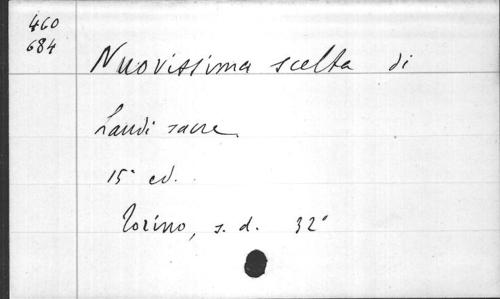 460
684
Nuovissima scelta di
Laudi sacre
15ª ed.
Torino, s. d. 32°